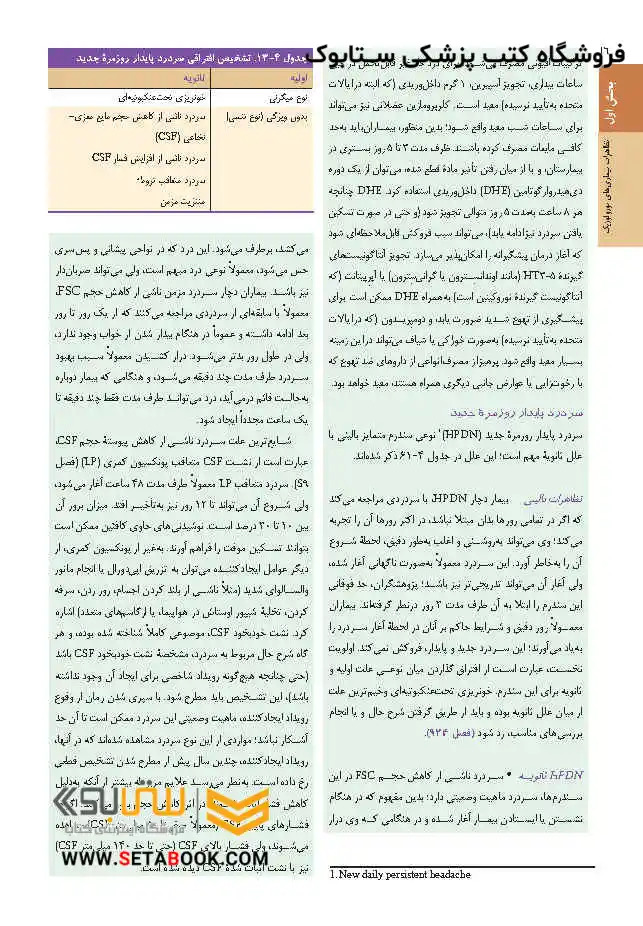 فروشگاه کتب پزشکی ستابوک
بخش اول
تظاهرات بیماری‌های نورولوژیک
ساعات بیداری، تجویز آسپیرین، ۱ گرم داخل‌وریدی (که البته در ایالات
متحده به‌تأیید نرسیده) مفید است. کلرپرومازین عضلانی نیز می‌تواند
برای ساعات شب مفید واقع شود؛ بدین منظور، بیماران باید به‌حد
کافی مایعات مصرف کرده باشند. ظرف مدت ۳ تا ۵ روز بستری در
بیمارستان، و با از میان رفتن تأثیر مادهٔ قطع شده، می‌توان از یک دوره
دی‌هیدروارگوتامین (DHE) داخل‌وریدی استفاده کرد. DHE چنانچه
هر ۸ ساعت به‌مدت ۵ روز متوالی تجویز شود (و حتی در صورت تسکین
یافتن سردرد نیز ادامه یابد)، می‌تواند سبب فروکش قابل‌ملاحظه‌ای شود
که آغاز درمان پیشگیرانه را امکان‌پذیر می‌سازد. تجویز آنتاگونیست‌های
گیرندهٔ 5-HT3 (مانند اوندانسترون یا گرانی‌سترون) یا آپرپیتانت (که
آنتاگونیست گیرندهٔ نوروکینین است) به‌همراه DHE ممکن است برای
پیشگیری از تهوع شدید ضرورت یابد، و دومپریدون (که در ایالات
متحده به‌تأیید نرسیده) به‌صورت خوراکی یا شیاف می‌تواند در این زمینه
بسیار مفید واقع شود. پرهیز از مصرف انواعی از داروهای ضد تهوع که
با رخوت‌زایی یا عوارض جانبی دیگری همراه هستند، مفید خواهد بود.
سردرد پایدار روزمرهٔ جدید
سردرد پایدار روزمرهٔ جدید (HPDN)¹ نوعی سندرم متمایز بالینی با
علل ثانویهٔ مهم است؛ این علل در جدول ۴-۶۱ ذکر شده‌اند.
تظاهرات بالینی بیمار دچار HPDN، با سردردی مراجعه می‌کند
که اگر در تمامی روزها بدان مبتلا نباشد، در اکثر روزها آن را تجربه
می‌کند؛ وی می‌تواند به‌روشنی و اغلب به‌طور دقیق، لحظهٔ شروع
آن را به‌خاطر آورد. این سردرد معمولاً به‌صورت ناگهانی آغاز شده،
ولی آغاز آن می‌تواند تدریجی‌تر نیز باشد؛ پژوهشگران، حد فوقانی
این سندرم را ابتلا به آن ظرف مدت ۳ روز درنظر گرفته‌اند. بیماران
معمولاً روز دقیق و شرایط حاکم بر آنان در لحظهٔ آغاز سردرد را
به‌یاد می‌آورند؛ این سردرد جدید و پایدار، فروکش نمی‌کند. اولویت
نخست، عبارت است از افتراق گذاردن میان نوعی علت اولیه و
ثانویه برای این سندرم. خونریزی تحت‌عنکبوتیه‌ای وخیم‌ترین علت
از میان علل ثانویه بوده و باید از طریق گرفتن شرح حال و یا انجام
بررسی‌های مناسب، رد شود (فصل ۹۳۴).
HPDN ثانویه • سردرد ناشی از کاهش حجم FSC در این
سندرم‌ها، سردرد ماهیت وضعیتی دارد؛ بدین مفهوم که در هنگام
نشستن یا ایستادن بیمار آغاز شده و در هنگامی که وی دراز
1. New daily persistent headache
جدول ۴-۱۳. تشخیص افتراقی سردرد پایدار روزمرهٔ جدید
اولیه ثانویه
نوع میگرنی خونریزی تحت‌عنکبوتیه‌ای
بدون ویژگی (نوع تنسی) سردرد ناشی از کاهش حجم مایع مغزی-
نخاعی (CSF)
سردرد ناشی از افزایش فشار CSF
سردرد متعاقب تروما*
مننژیت مزمن
می‌کشد، برطرف می‌شود. این درد که در نواحی پیشانی و پس‌سری
حس می‌شود، معمولاً نوعی درد مبهم است، ولی می‌تواند ضربان‌دار
نیز باشد. بیماران دچار سردرد مزمن ناشی از کاهش حجم FSC،
معمولاً با سابقه‌ای از سردردی مراجعه می‌کنند که از یک روز تا روز
بعد ادامه داشته و عموماً در هنگام بیدار شدن از خواب وجود ندارد،
ولی در طول روز بدتر می‌شود. دراز کشیدن معمولاً سبب بهبود
سردرد ظرف مدت چند دقیقه می‌شود، و هنگامی که بیمار دوباره
به‌حالت قائم درمی‌آید، درد می‌تواند ظرف مدت فقط چند دقیقه تا
یک ساعت مجدداً ایجاد شود.
شایع‌ترین علت سردرد ناشی از کاهش پیوستهٔ حجم FSC،
عبارت است از نشت CSF متعاقب پونکسیون کمری (LP) (فصل
S9). سردرد متعاقب LP معمولاً ظرف مدت ۴۸ ساعت آغاز می‌شود،
ولی شروع آن می‌تواند تا ۱۲ روز نیز به‌تأخیر افتد. میزان بروز آن
بین ۱۰ تا ۳۰ درصد است. نوشیدنی‌های حاوی کافئین ممکن است
بتوانند تسکین موقت را فراهم آورند. به‌غیر از پونکسیون کمری، از
دیگر عوامل ایجادکننده می‌توان به تزریق اپی‌دورال یا انجام مانور
والسالوای شدید (مثلاً ناشی از بلند کردن اجسام، زور زدن، سرفه
کردن، تخلیهٔ شیپور اوستاش در هواپیما، یا ارگاسم‌های متعدد) اشاره
کرد. نشت خودبخود CSF، موضوعی کاملاً شناخته شده بوده، و هر
گاه شرح حال مربوط به سردرد، مشخصهٔ نشت خودبخود CSF باشد
(حتی چنانچه هیچ‌گونه رویداد شاخصی برای ایجاد آن وجود نداشته
باشد)، این تشخیص باید مطرح شود. با سپری شدن زمان از وقوع
رویداد ایجادکننده، ماهیت وضعیتی این سردرد ممکن است تا آن حد
آشکار نباشد؛ مواردی از این نوع سردرد مشاهده شده‌اند که در آنها،
رویداد ایجادکننده، چندین سال پیش از مطرح شدن تشخیص قطعی
رخ داده است. به‌نظر می‌رسد علایم بیشتر از آنکه به‌دلیل
کاهش فشار
فشارهای
می‌شوند، ولی فشار بالای CSF (حتی تا حد ۱۴۰ میلی‌متر CSF)
نیز با نشت اثبات شدهٔ CSF دیده شده است.
ستابوک
فروشگاه اینترنتی کتاب
WWW.SETABOOK.COM